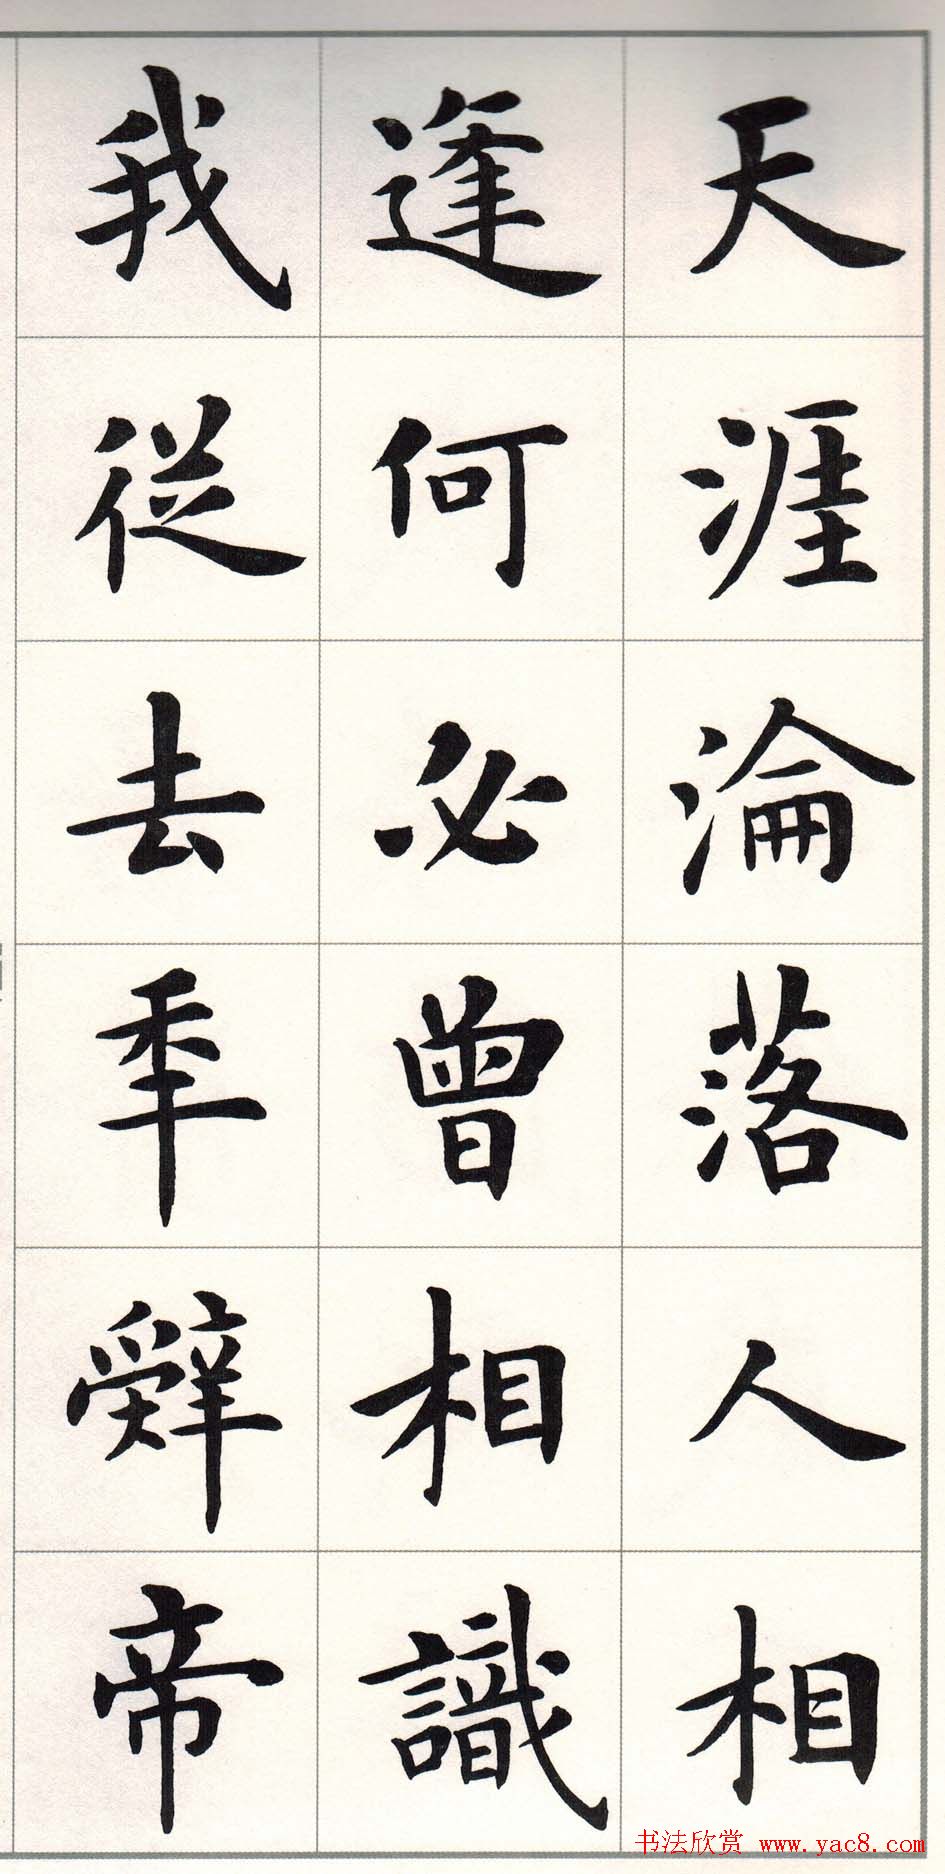 天涯淪落人相
逢何必曾相識
我從去秊辤帝
书法欣赏 www.yac8.com